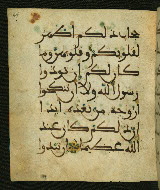 حجاب ذلكم اطهر
لقلوبكم وقلوبهن وما
كان لكم ان توذوا
رسول الله ولا ان تنكحوا
ازوجه من بعده ابدا
ان ذلكم كان عند
الله عظيما ان تبدوا